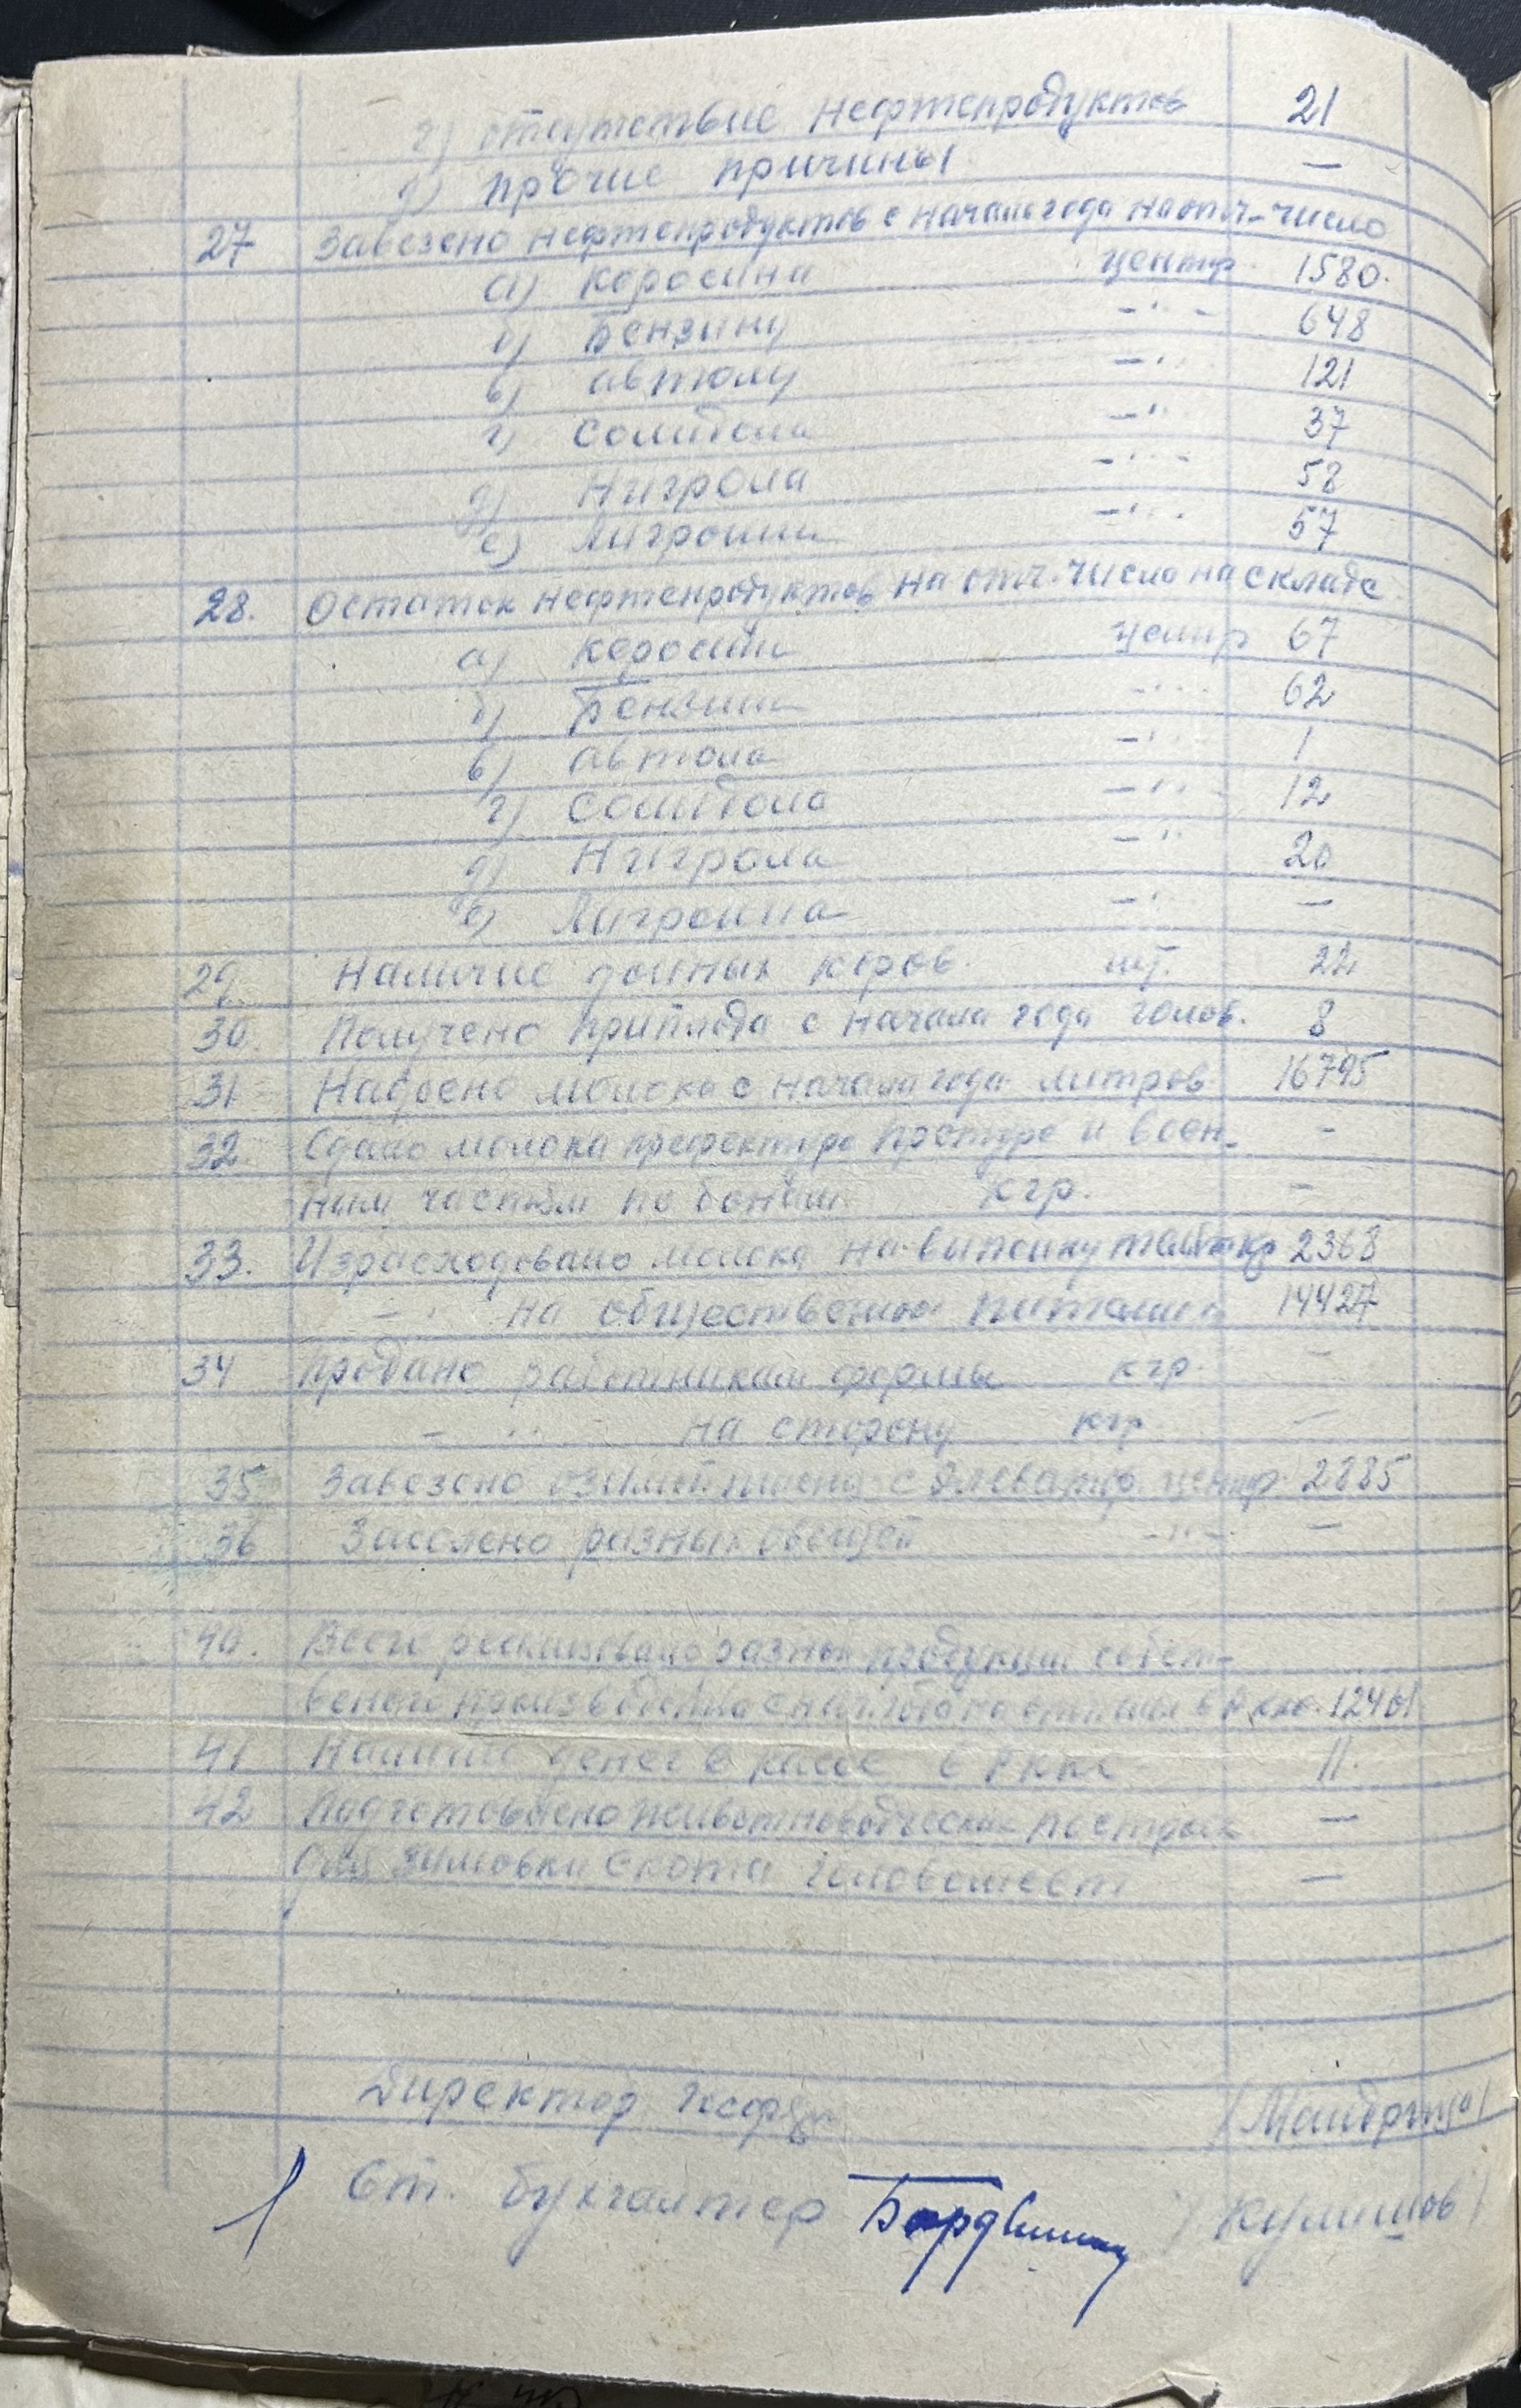 г) отсутствие нефтепродуктов 21
д) прочие причины —
27 Завезено нефтепродуктов с начала года на отч. число
а) Керосина центр. 1580.
б) Бензину -"- 648
в) автолу -"- 121
г) Солидола -"- 37
д) Нигрола -"- 58
е) Лигроина -"- 57
28. Остаток нефтепродуктов на отч. число на складе
а) Керосина центр 67
б) Бензина -"- 62
в) автола -"- 1
г) Солидола -"- 12
д) Нигрола -"- 20
е) Лигроина -"- —
29. Наличие дойных коров. шт. 22
30. Получено приплода с начала года голов. 8
31 Надоено молока с начала года литров 16795
32. Сдано молока префектуре и воен- -
ным частям по бонам кгр. —
33. Израсходовано молока на выпойку телят кг 2368
-"- на общественное питание 14427
34 Продано работникам фермы кгр. —
-"- на сторону кгр. —
35 Завезено с элеватора центр. 2885
36 Засолено разных овощей -"- —
40. Всего реализовано разной продукции собст-
венного производства
41 Наличие денег в кассе в РККС 11.
42 Подготовлено животноводческих построек —
для зимовки скота головомест —
Директор
Ст. бухгалтер